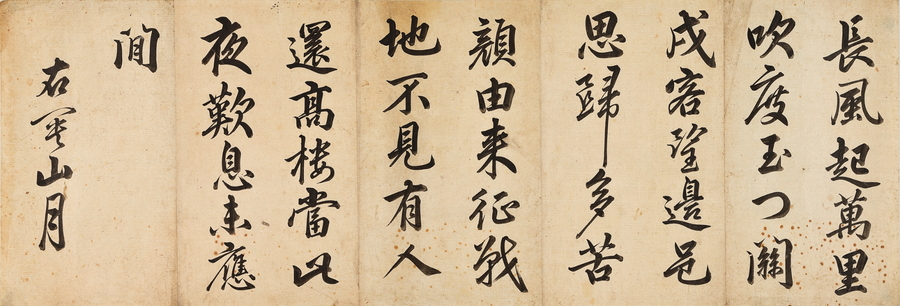 長風起萬里
吹度玉門關
戍客望邊邑
思歸多苦
顔由来征戰
地不見有人
還高楼當此
夜歎息未應
閒
右關山月